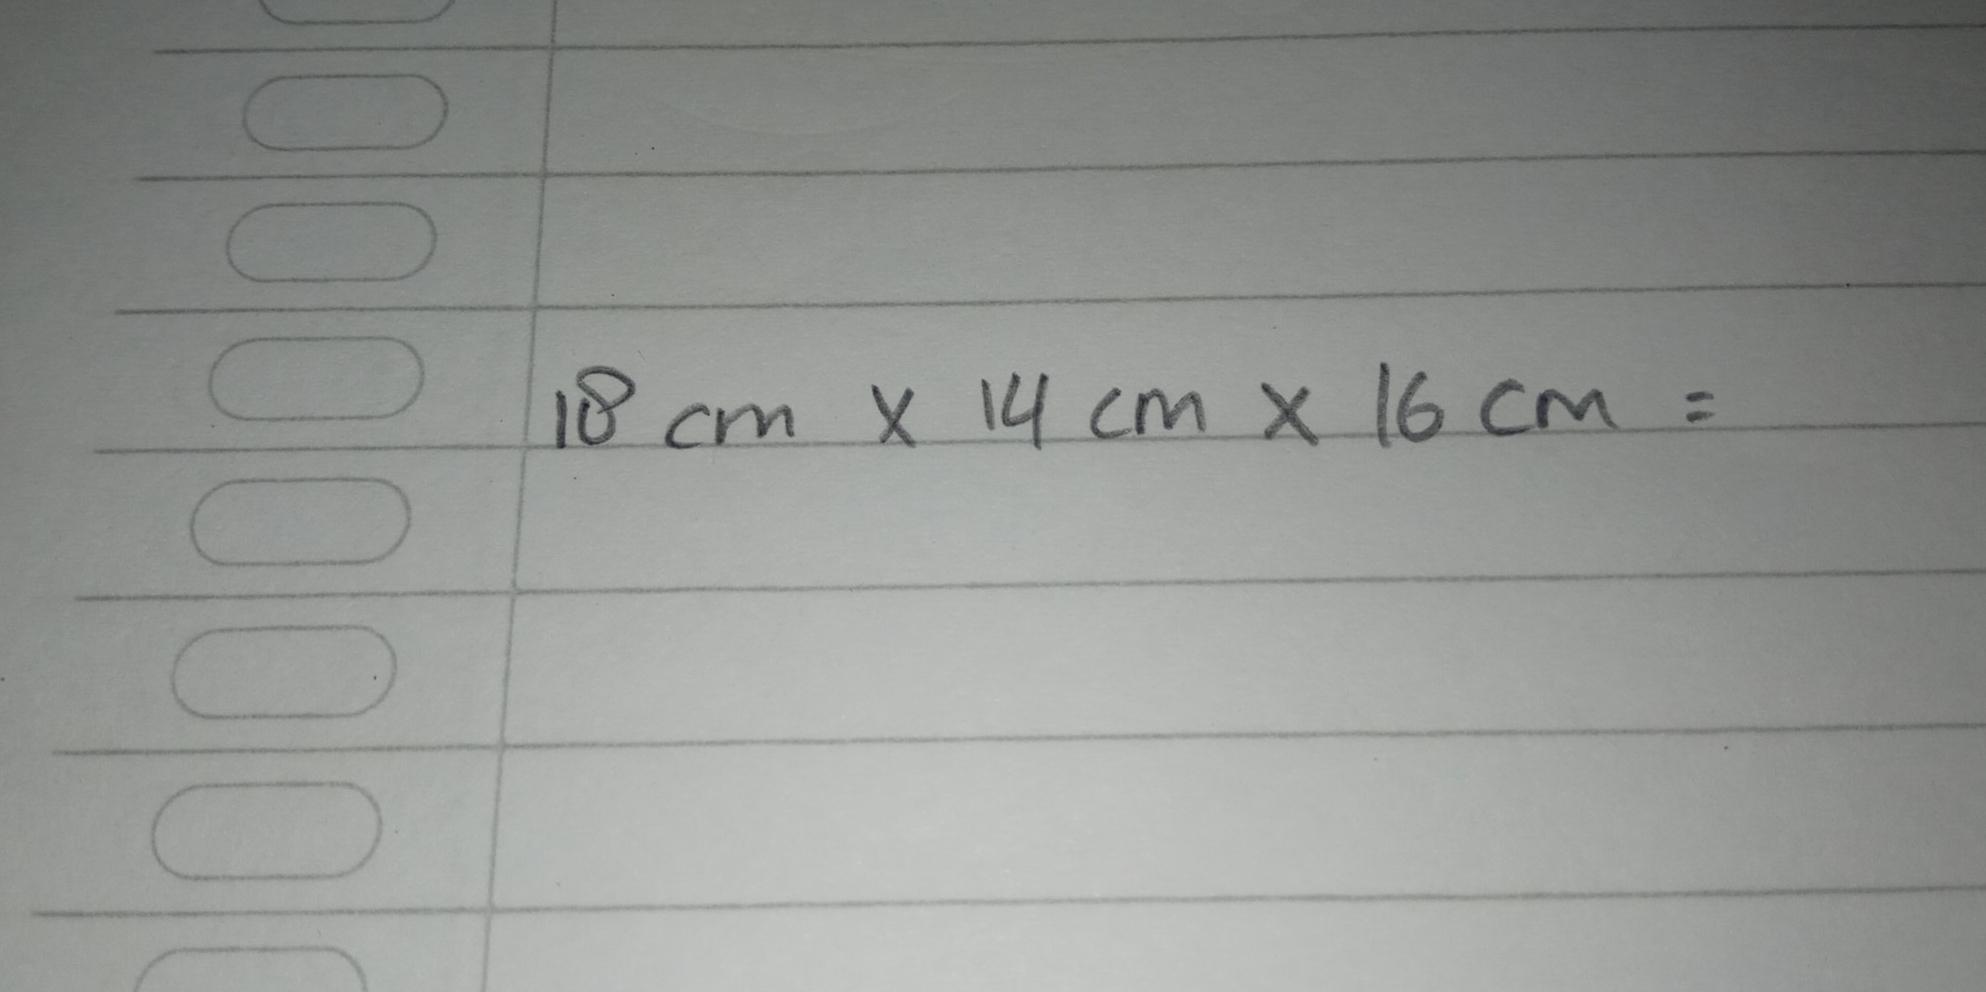 18 cm x 14 cm x 16 cm =